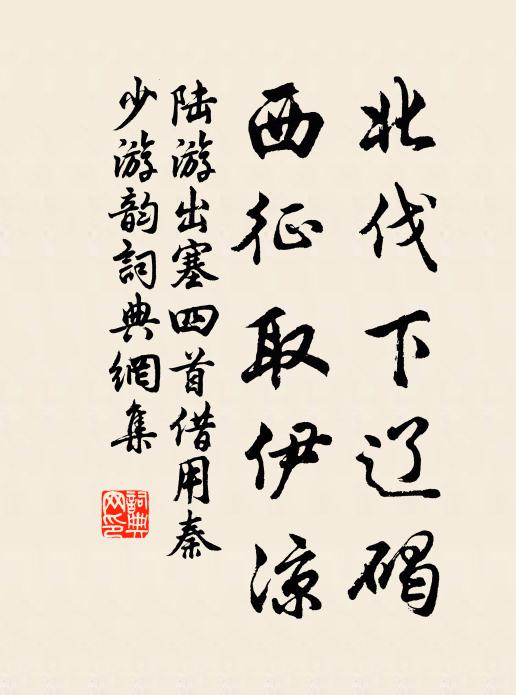 北伐下辽碣
西征取伊凉
陆游出塞四首借用秦
少游韵词典網集
詞典网印